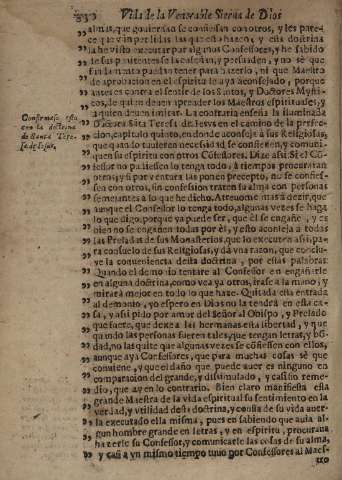 330 Vida de la Venerable Sierva de Dios
almas, que gouiernan se confiesan con otros, y les pare-
ce que van perdidas las que esto hacen, y esta doctrina
la he visto executar por algunos Confessores, y he sabido
de sus penitentes
y no sè que
fundamento puedan tener para hacerlo, ni què Maestro
de aprobacion en el espiritu lo aya aconsejado, porque
antes es contra el sentir de los Santos, y Doctores Mysti-
cos, de quien deuen aprender los Maestros espirituales, y
a quien deuen imitar. La contraria enseña la iluminada
Doctora Sãta Teresa de Jesvs en el camino de la perfec-
cion, capitulo quinto, en donde aconseja à sus Religiosas,
que quando tuuieren necesidad se confiesen, y comuni-
quen su espiritu con otros Cõfessores. Dize asi: Si el Cõ-
fessor no pudiesen lo tenga todo, à tiempos procuraran
otros; y si por ventura las ponen precepto, no se confies-
sen con otros, sin confession traten su alma con personas
semejantes à lo que he dicho. Atreuome mas à dezir, que
aunque el Confessor lo tenga todo, algunas vezes se haga
lo que digo, porque ya puede ser, que èl se engañe, y es
bien no se engañen todas por èl, y esto aconseja à todas
las Preladas de sus Monasterios, que lo executen assi, pa-
ra consuelo de sus Religiosas, y dà vna razon, que conclu-
ye la conueniencia desta doctrina, por estas palabras:
Quando el demonio tentare al Confessor en engañarle
en alguna doctrina, como vea ya otros, irase à la mano; y
mirarà mejor en todo lo que haze. Quitada esta entrada
al demonio, yo espero en Dios no la tendrà en esta ca-
sa, y assi pido por amor del Señor al Obispo, y Prelado
que fuere, que dexe à las hermanas esta libertad, y que
quando las personas fueren tales, que tengan letras, y bõ-
dad, no las quite que algunas vezes se cõfiesen con ellos,
aunque aya Confessores, que para muchas cosas sè que
conuiene, y que el daño que puede auer es ninguno en
comparacion del grande, y dissimulado, y casi sin reme-
dio, que ay en lo contrario. Bien claro manifiesta esta
grande Maestra de la vida espiritual su sentimiento en la
verdad, y vtilidad desta doctrina, y consta de su vida auer-
la executado ella misma, pues en sabiendo que auia al-
gun hombre grande en letras, y en espiritu, procuraua
hazerle su Confessor, y comunicarle las cosas de su alma,
y casi à vn mismo tiempo tuuo por Confessores al Maes-
tro
Confirmase esto
con la doctrina
de Santa Tere-
sa de Jesus.